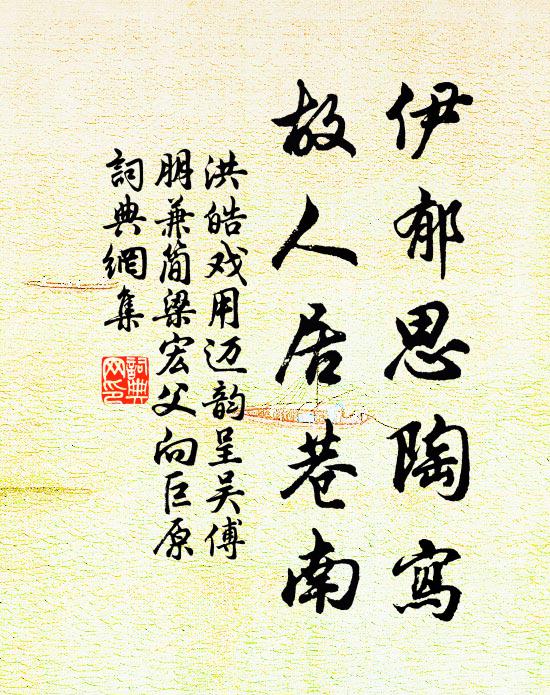 伊郁思陶寫
故人居巷南
洪皓戏用迈韵呈吴傅
朋兼简梁宏父向巨原
詞典網集